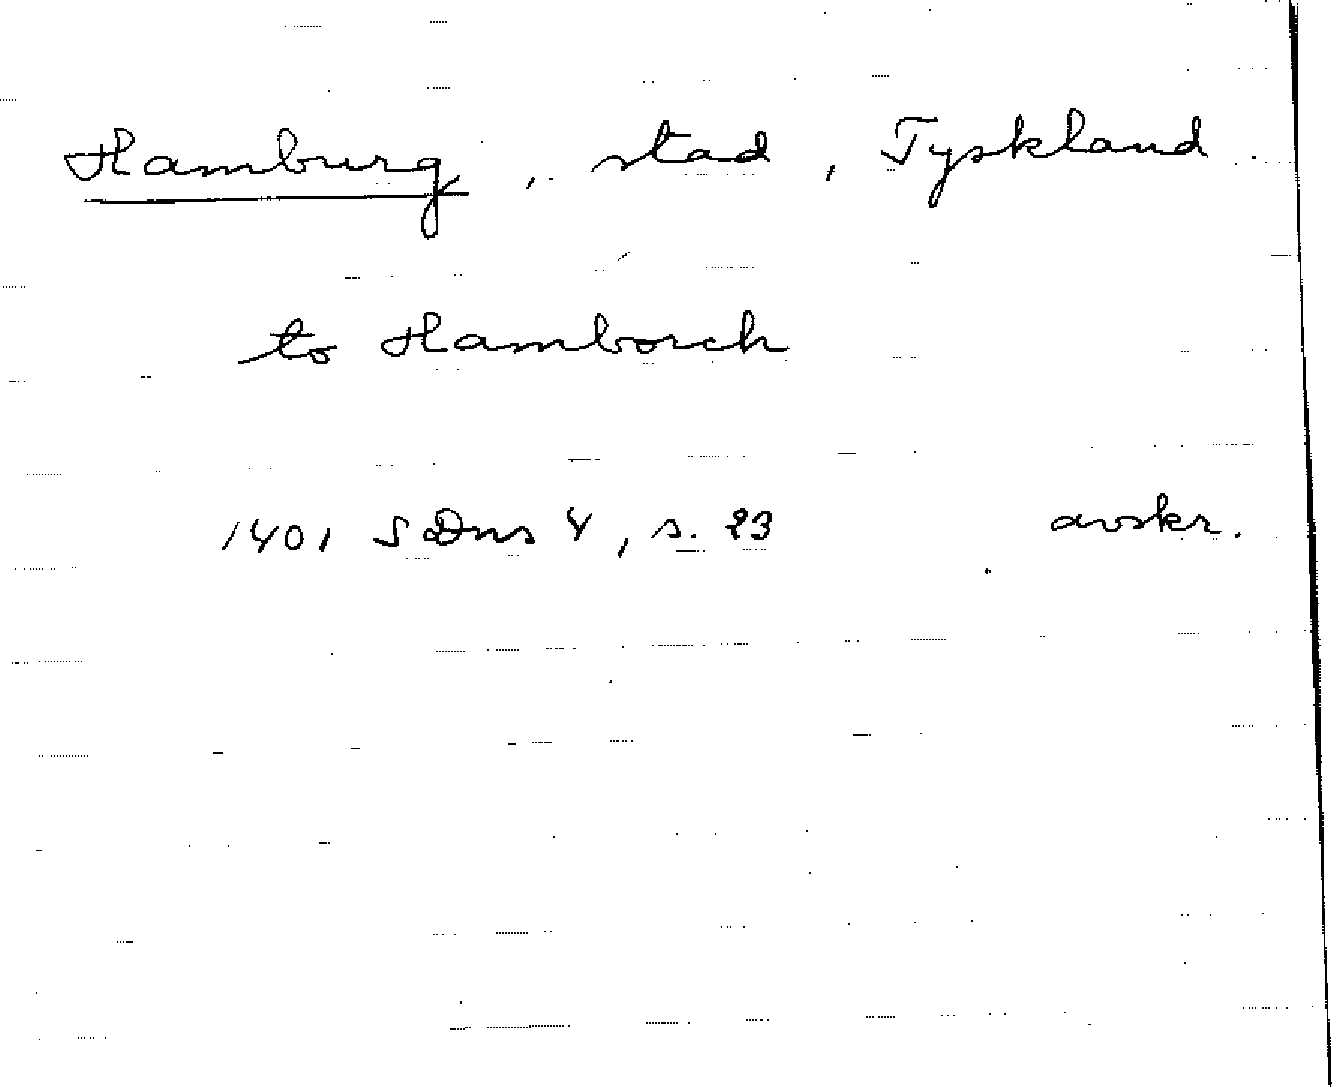 Hamburg, stad, Tyskland
to Hamborch
1401 SDns 4, s. 23 avskr.